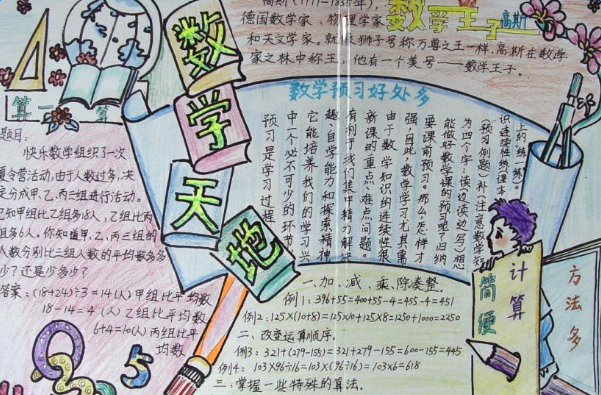 数学天地
德国数学家、物理学家
和天文学家。就像狮子号称万兽之王一样,高斯在数学
家之林中称王,他有一个美号——数学王子。
数学王子
高斯
数学预习好处多
预习是学习过程
中一个必不可少的环节
它能培养我们的学习兴
趣、自学能力和探索精神
有利于我们集中精力解决
新课的重点、难点问题。
由于数学知识的连续性很
强,因此,数学学习尤其需
要课前预习。那么,怎样才
能做好数学课的预习呢?归纳
算一算
题目:
快乐数学组织了一次
夏令营活动,由于人数过多,决
定分成甲、乙、丙三组进行活动。
已知甲组比乙组多18人,乙组比丙
组多6人。你知道甲、乙、丙三组的
人数分别比三组人数的平均数多多
少?还是少多少?
答案:(18+24)÷3=14(人)甲组比平均数
18-14=4(人)乙组比平均数
6+4=10(人)丙组比平
均数
一、加、减、乘、除凑整。
例1:396+55=400+55-4=455-4=451
例2:125×(10+8)=125×10+125×8=1250+1000=2250
二、改变运算顺序。
例3:321+(279-155)=321+279-155=600-155=445
例4:103×96÷16=103×(96÷16)=103×6=618
三、掌握一些特殊的算法。
简便
计算
方法多